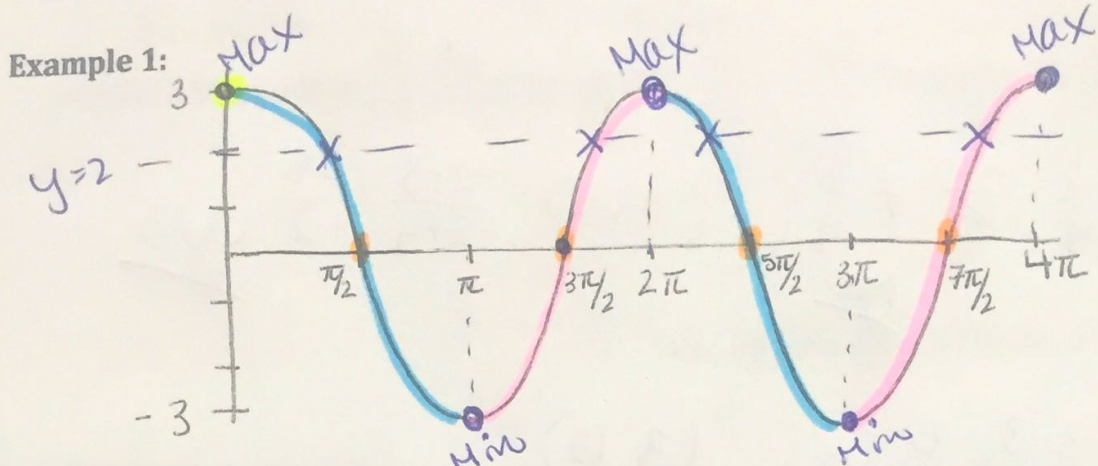 Example 1:
Max
Max
Max
3
y=2
π/2
π
3π/2
2π
5π/2
3π
7π/2
4π
-3
Min
Min